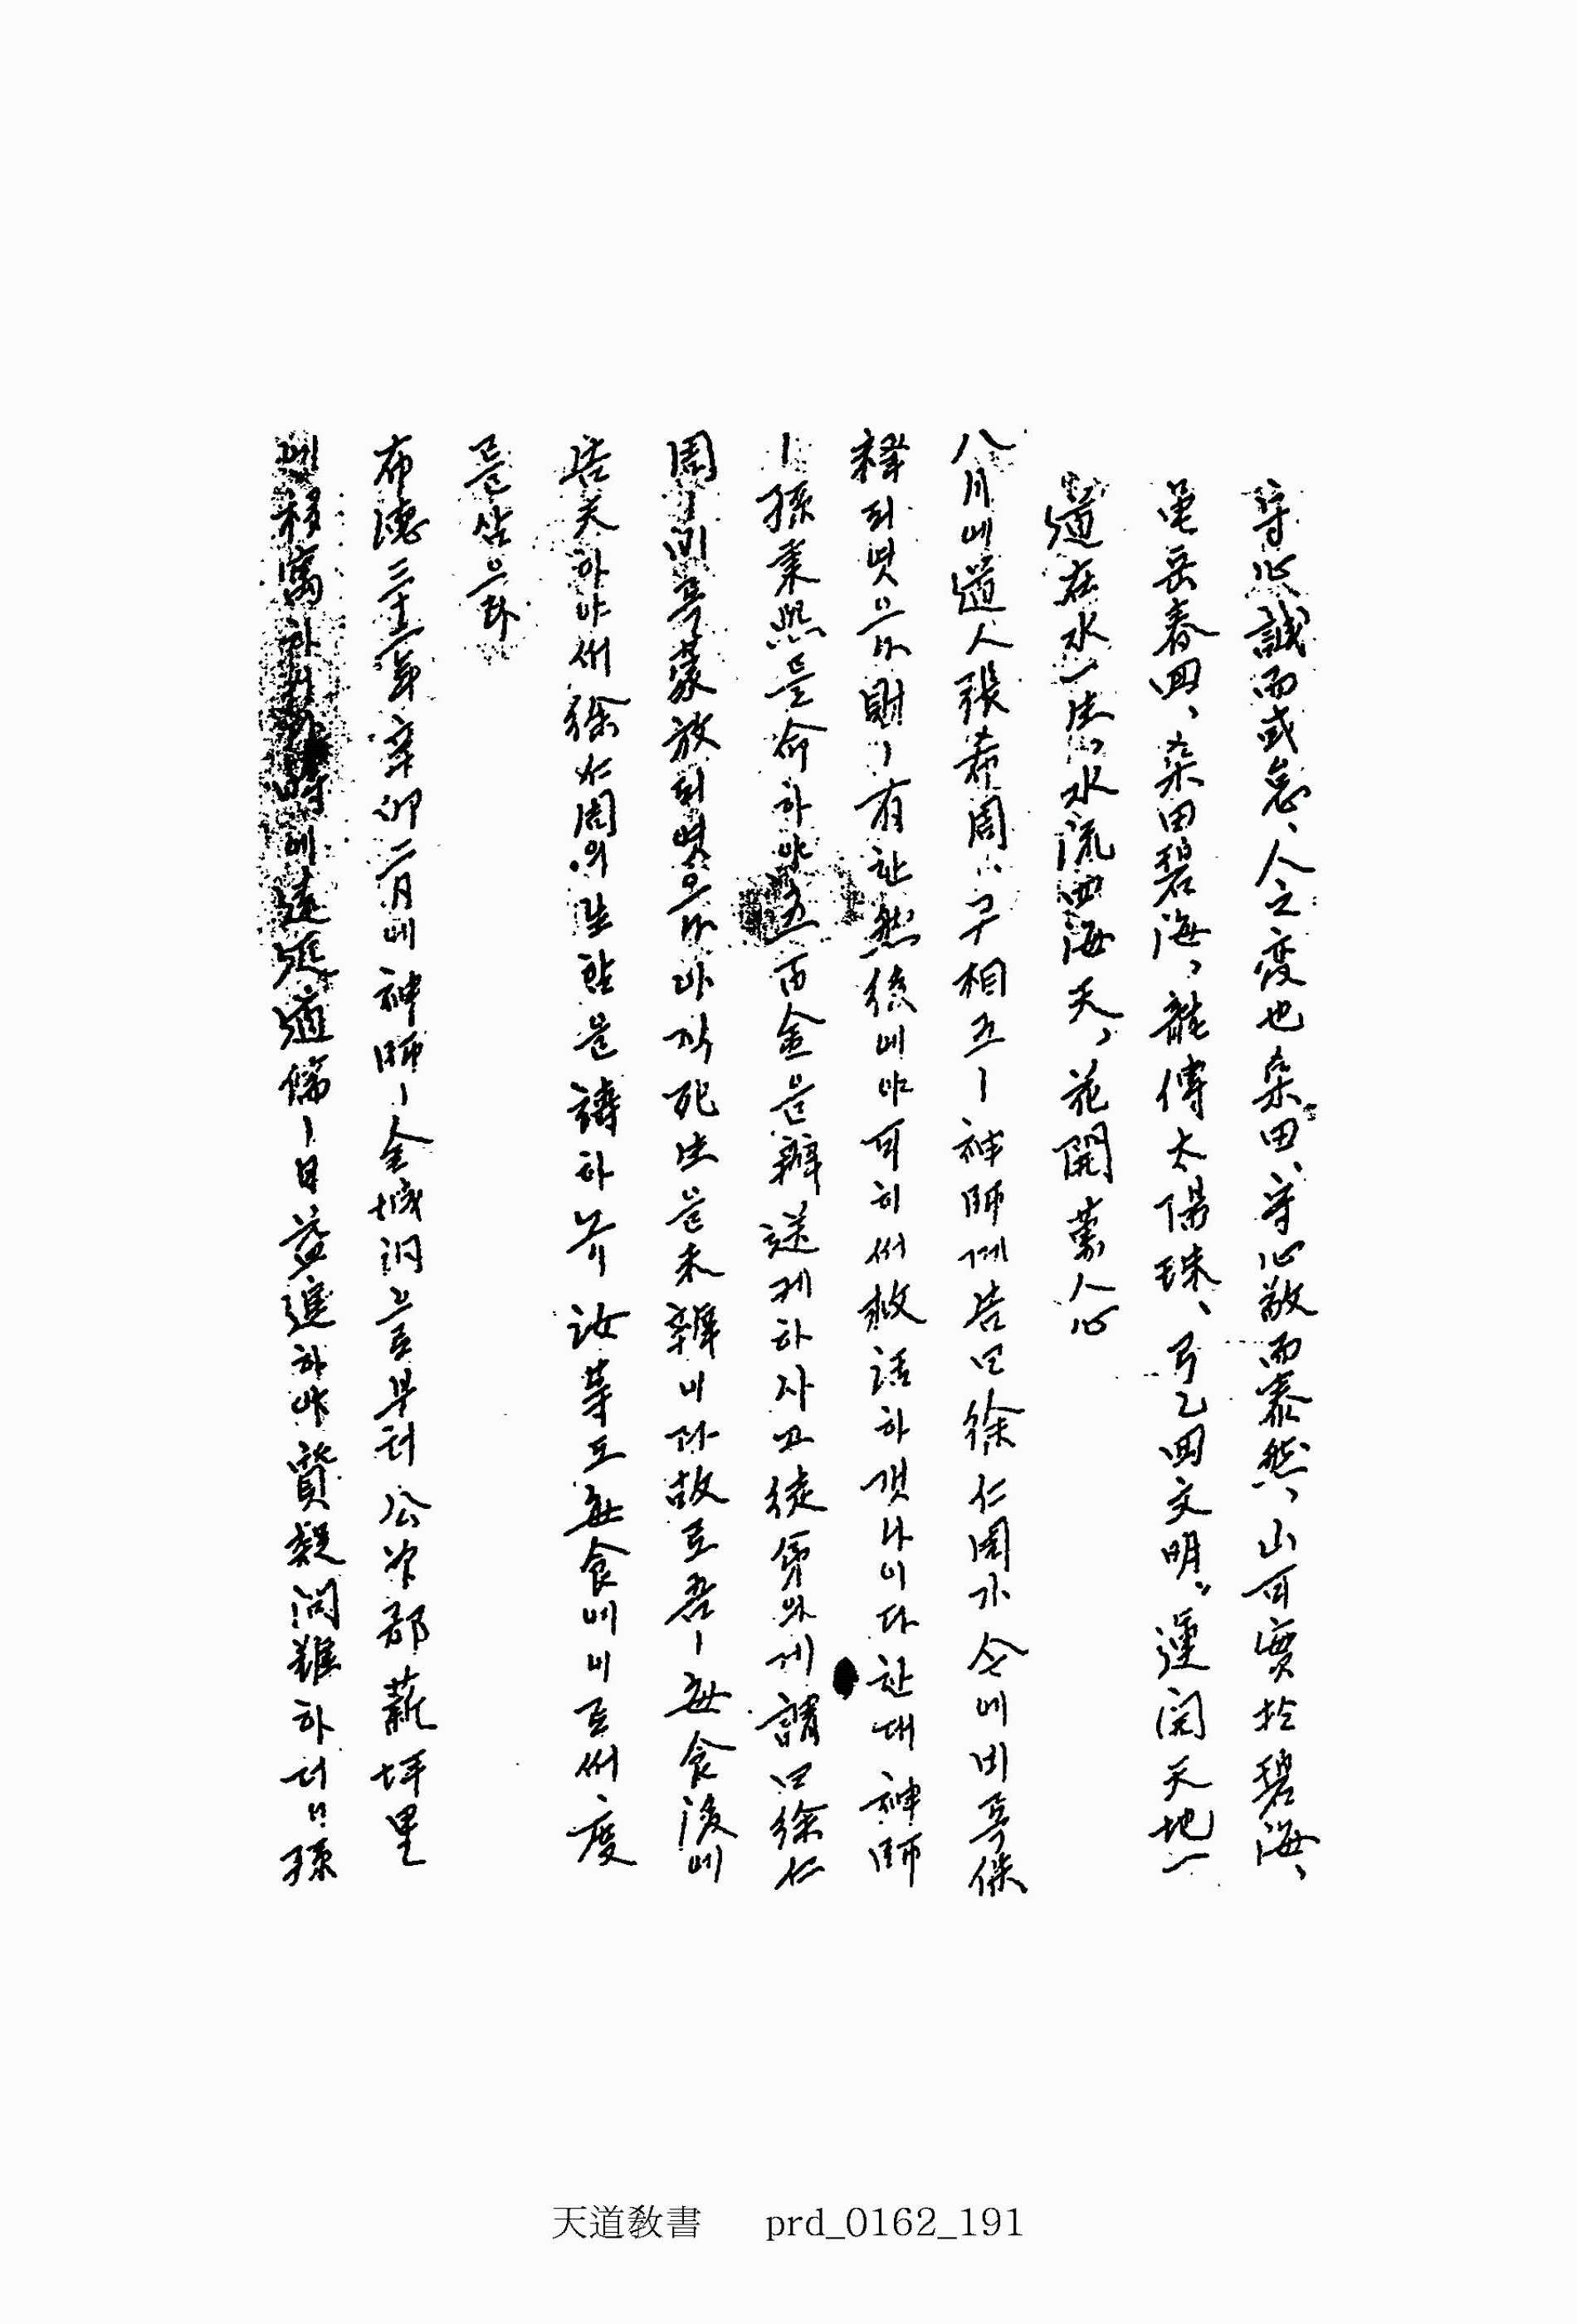 守心誠而或怠、人之變也桑田、守心敬而泰然、山可實於碧海、
龜岳春回、桑田碧海、龍傳太陽珠、弓乙回文明、運開天地一
道在水一生、水流四海天、花開萬人心
八月에道人張希周ㅣ구相五ㅣ神師께告曰徐仁周가今에비록保
釋되엿으나財ㅣ有한然後에야可히써救活하갯나이다한대神師
ㅣ孫秉熙를命하야五百金을辦送케하사고徒弟의게謂曰徐仁
周ㅣ비록蒙放되엿으나아즉死生을未辦이라故로吾ㅣ每食後에
告天하야써徐仁周의生함을禱하노니汝等도每食에이로써度
를삼으라
布德三十二年辛卯二月에神師ㅣ金城洞으로부터公州郡薪坪里
에移寓하시다時에遠近道儒ㅣ日益進하야質疑問難하더니孫
天道敎書 prd_0162_191